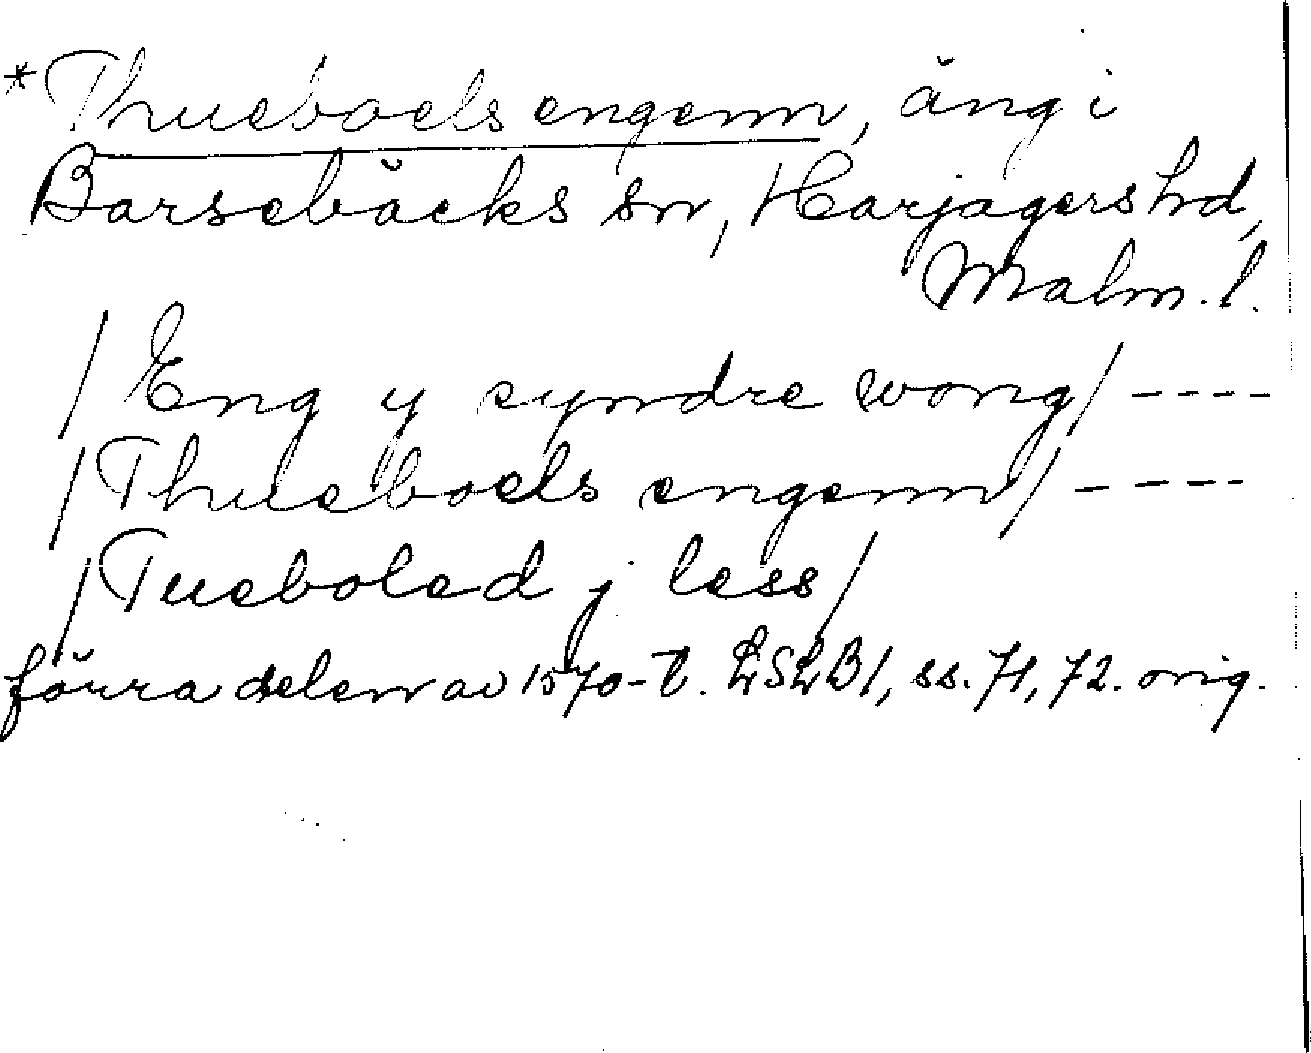 *Thueboels engenn, äng i
Barsebäcks sn, Harjagers hd,
Malm. l.
/Eng y syndre wong/ ----
/Thueboels engenn/ ----
/Tueboled j less/
förra delen av 1570-t. LSLB1, ss. 71, 72. orig.